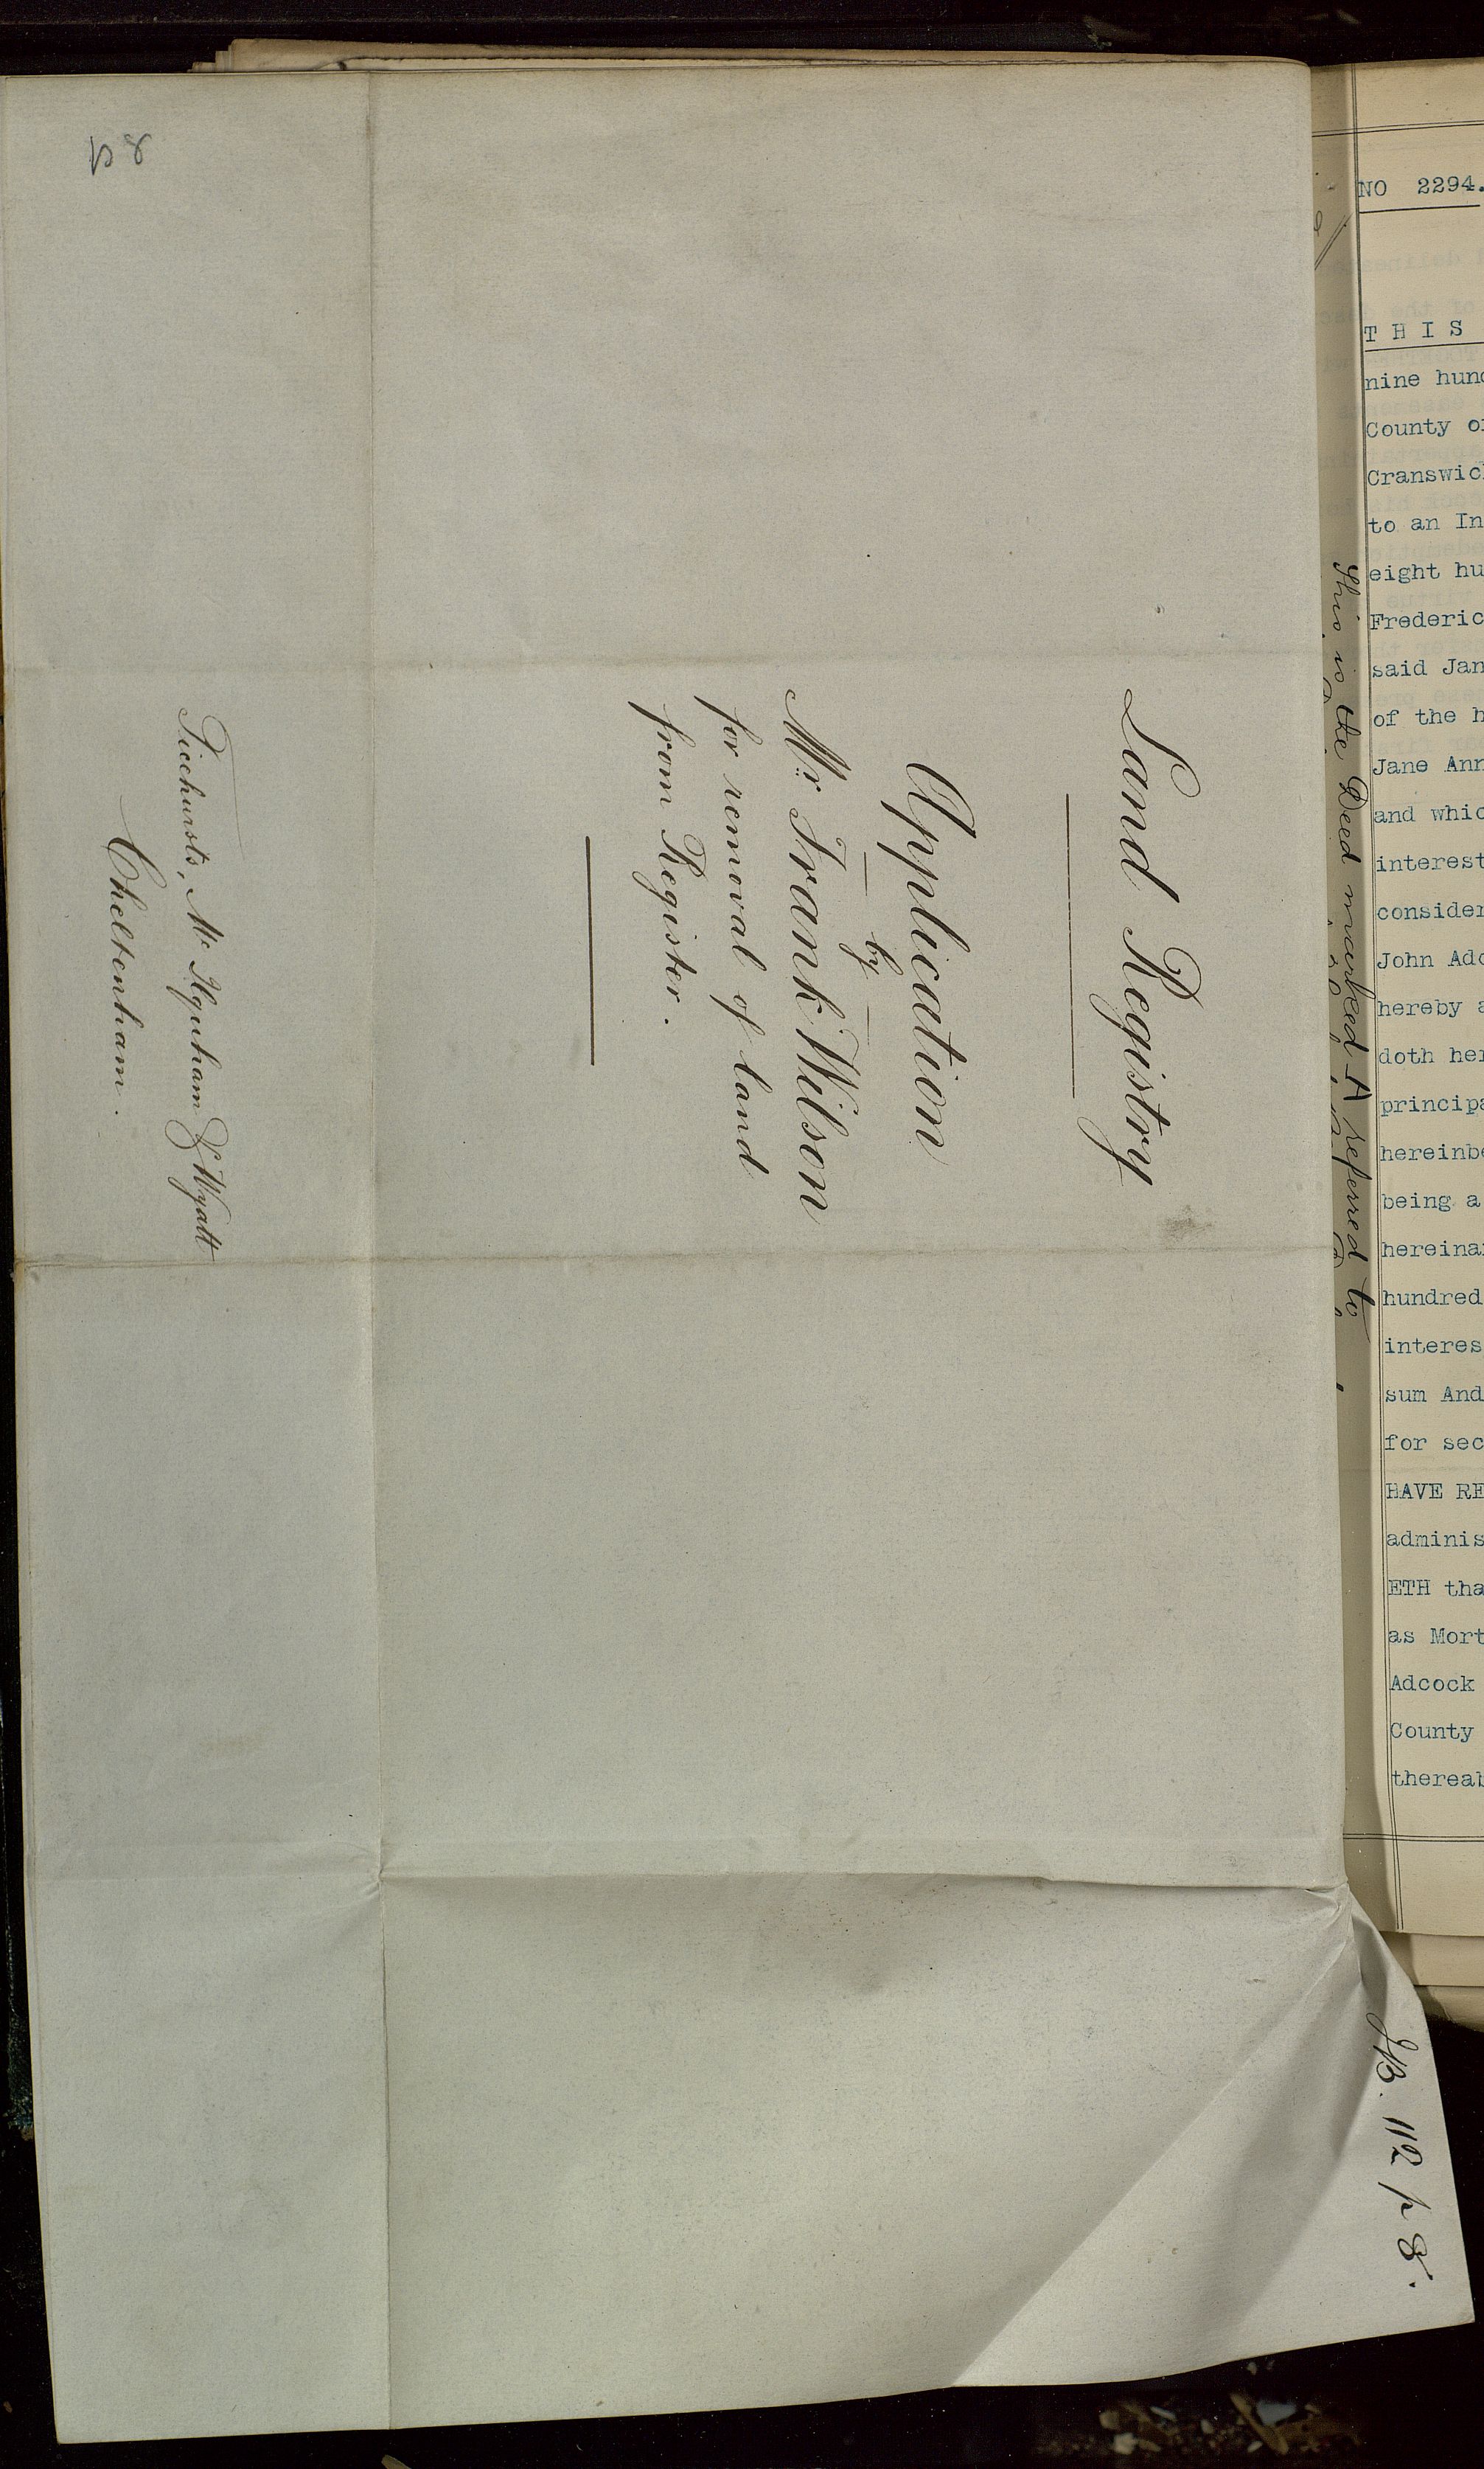 Land Registry
Application
by
Mr Frank Wilson
for removal of land
from Register.
Ticehursts, Mc Ilquham & Wyatt
Cheltenham.
p 8
JB. 112 p 8.
This is the Deed marked A referred to
NO 2294.
THIS
nine hund
County of
Cranswick
to an In
eight hu
Frederic
said Jan
of the h
Jane Ann
and whic
interest
consider
John Adc
hereby a
doth her
principa
hereinbe
being a
hereinaf
hundred
interes
sum And
for sec
HAVE RE
adminis
ETH tha
as Mort
Adcock
County
thereab